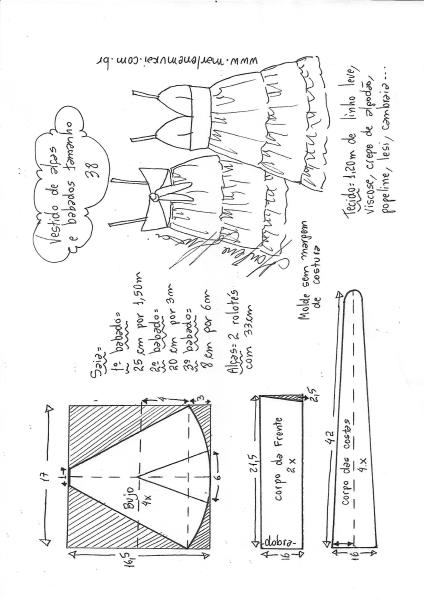 Vestido de alças
e babados tamanho
38
www.marlenemukai.com.br
Tecido=1,20m de linho leve,
viscose, crepe de algodão,
popeline, lesi, cambraia...
Saia=
1º babado=
25 cm por 1,50m
2º babado=
20 cm por 3m
3º babado=
8 cm por 6m
Alças=2 rolotês
com 33cm
Molde sem margem
de costura
17
1
4
3
Bujo
4x
6
16,5
21,5
2,5
corpo da frente
2x
dobra
16
42
corpo das costas
4x
16